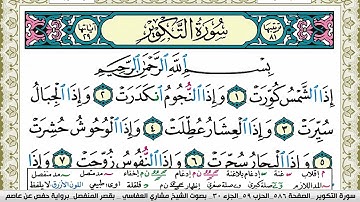 ترتيبها ٨١
سُورَةُ التَّكْوِيرِ
آياتها ٢٩
بِسْمِ اللَّهِ الرَّحْمَٰنِ الرَّحِيمِ
إِذَا الشَّمْسُ كُوِّرَتْ ١ وَإِذَا النُّجُومُ انكَدَرَتْ ٢ وَإِذَا الْجِبَالُ
سُيِّرَتْ ٣ وَإِذَا الْعِشَارُ عُطِّلَتْ ٤ وَإِذَا الْوُحُوشُ حُشِرَتْ
٥ وَإِذَا الْبِحَارُ سُجِّرَتْ ٦ وَإِذَا النُّفُوسُ زُوِّجَتْ ٧
سورة التكوير - الصفحة ٥٨٦ - الحزب ٥٩ - الجزء ٣٠ - بصوت الشيخ مشاري العفاسي - بقصر المنفصل - برواية حفص عن عاصم